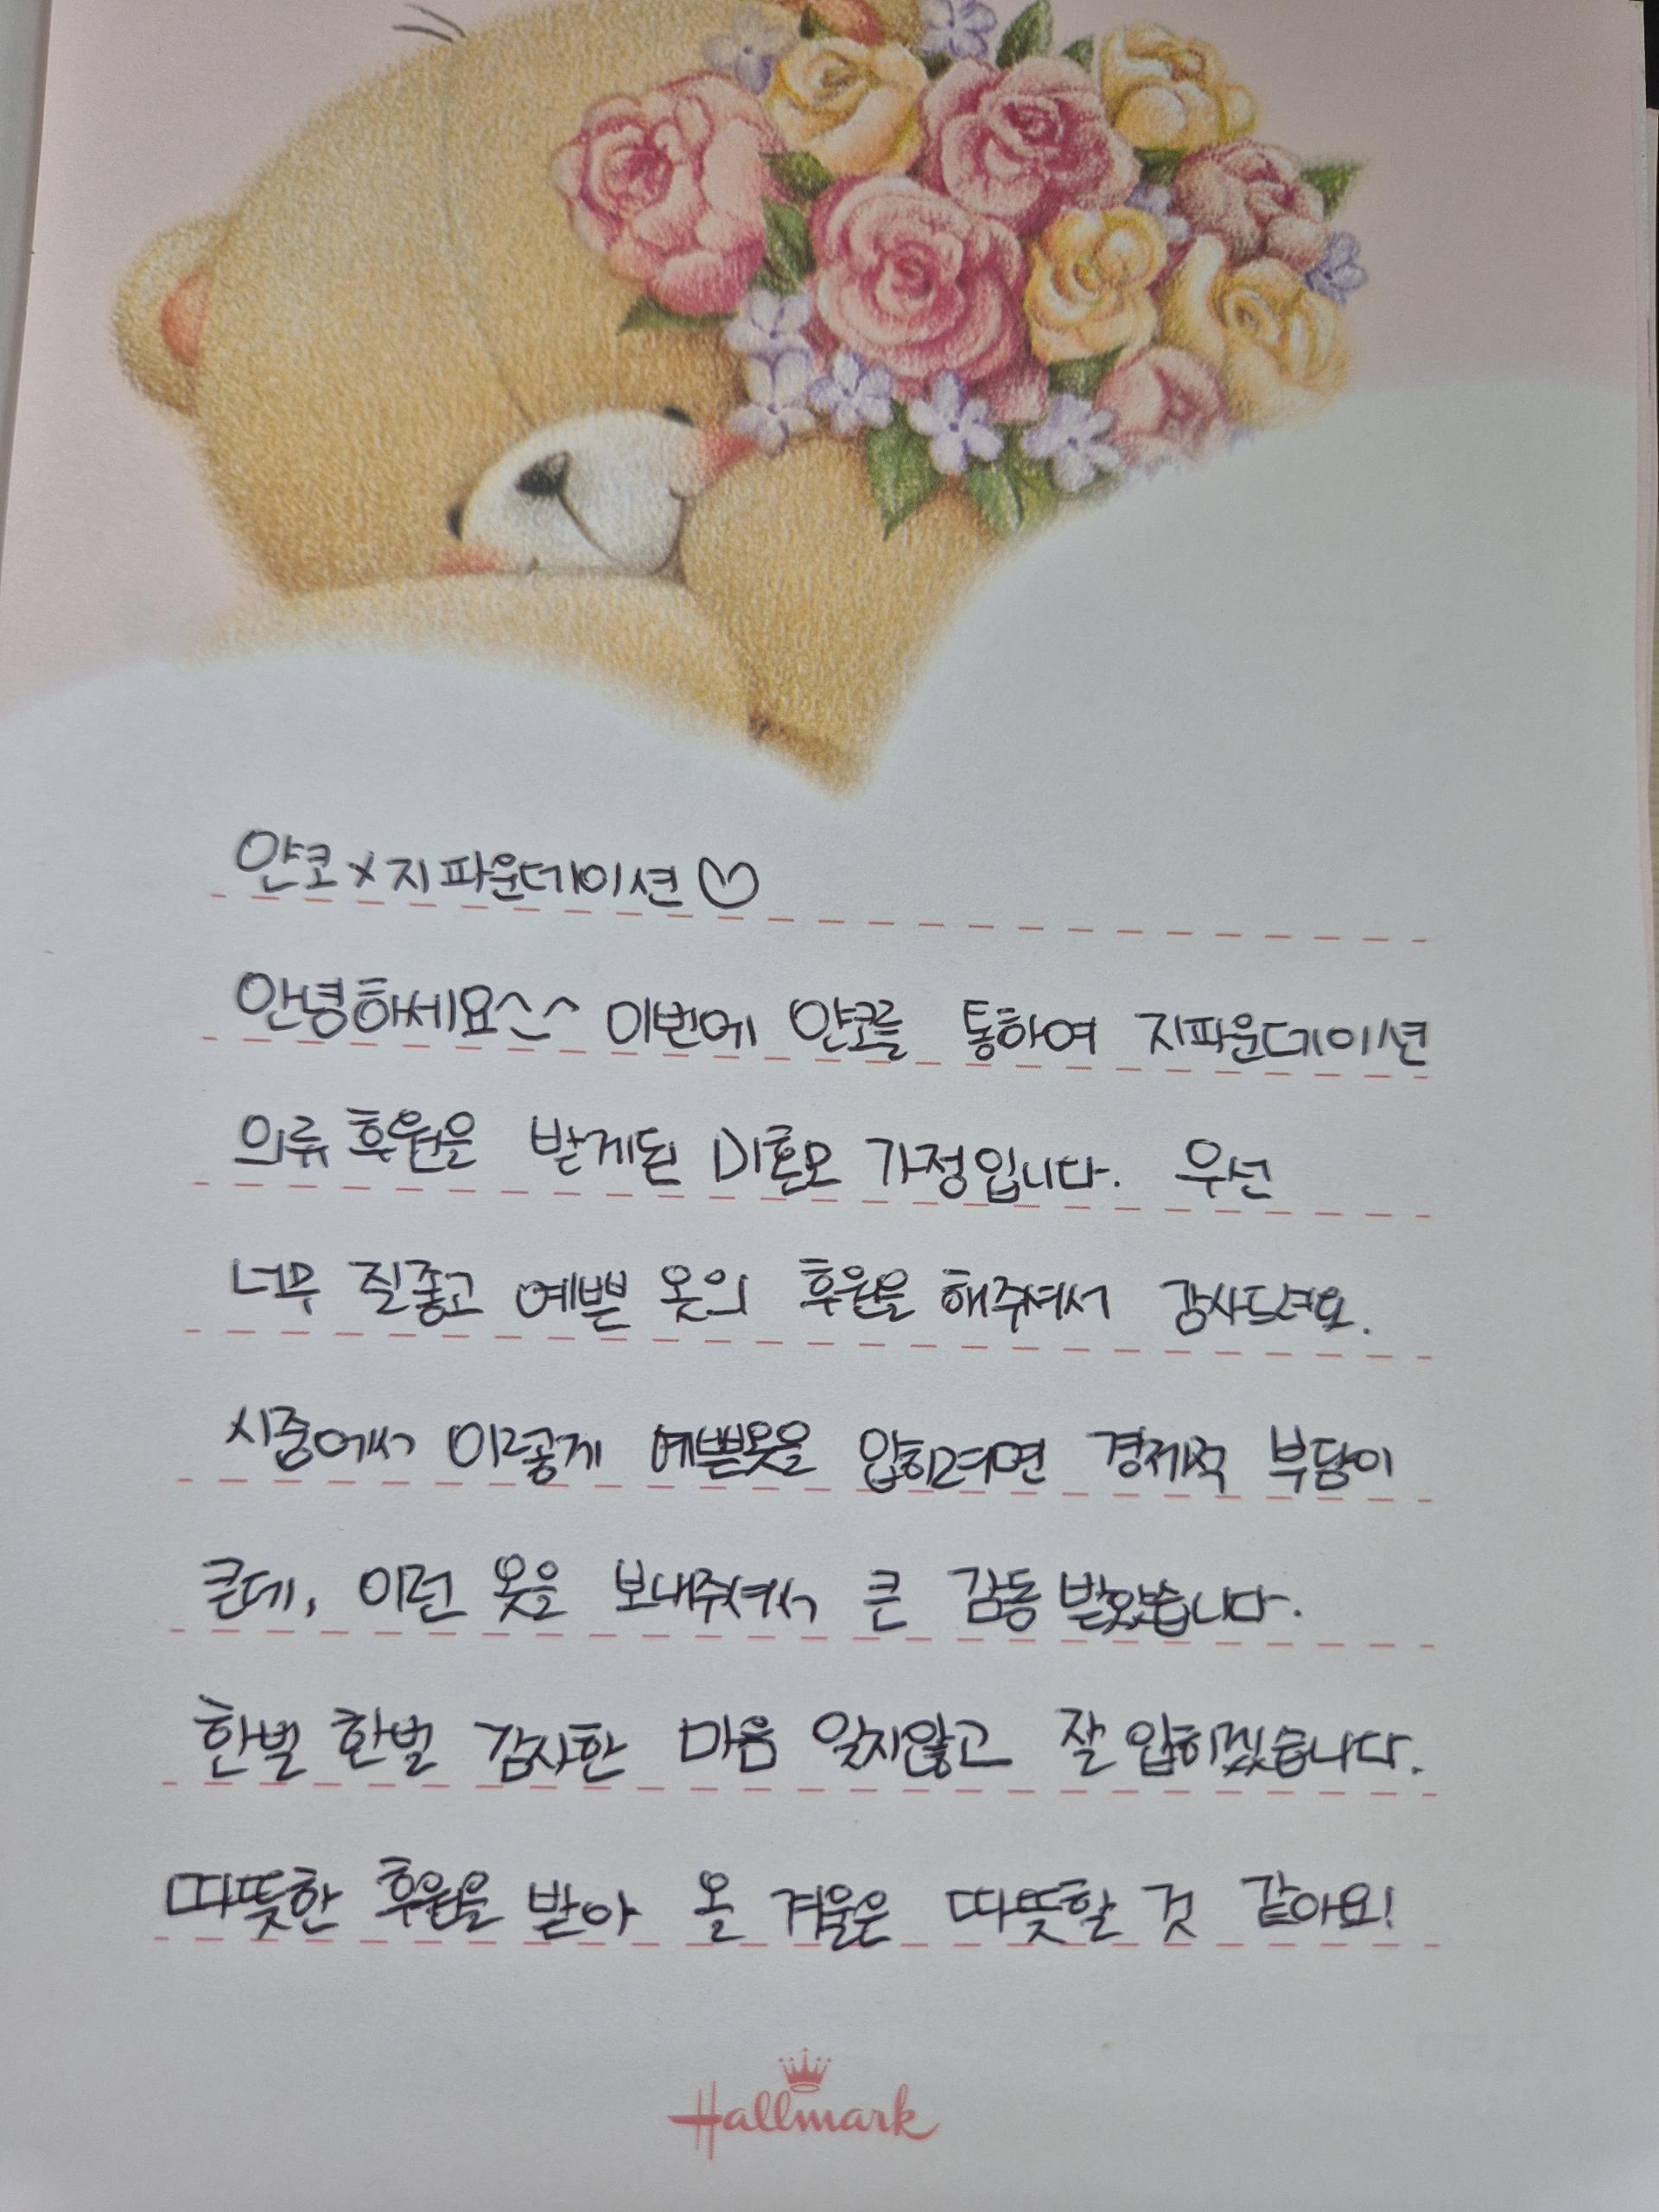 얀코×지파운데이션♡
안녕하세요^^ 이번에 얀코를 통하여 지파운데이션
의류 후원을 받게된 미혼모 가정입니다. 우선
너무 질좋고 예쁜 옷의 후원을 해주셔서 감사드려요.
시중에서 이렇게 예쁜옷을 입히려면 경제적 부담이
큰데, 이런 옷을 보내주셔서 큰 감동 받았습니다.
한벌 한벌 감사한 마음 잊지않고 잘 입히겠습니다.
따뜻한 후원을 받아 올 겨울은 따뜻할 것 같아요!
Hallmark